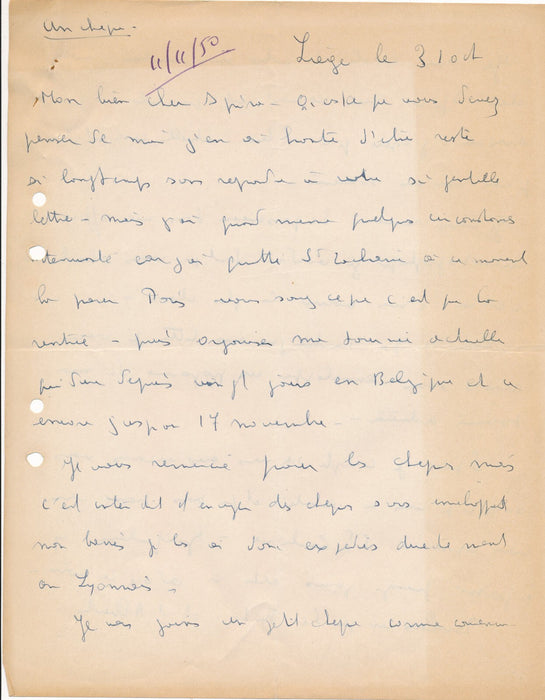 un chèque -
11/11/50
Liège le 31 oct
Mon bien cher Spire - Qu'est ce que vous devez
penser de moi j'en ai honte d'être resté
si longtemps sans répondre à votre si gentille
lettre - mais j'ai quand même quelques circonstances
car j'ai quitté St Zacharie à ce moment
là pour Paris vous savez ce que c'est que la
rentrée - puis organiser ma tournée actuelle
qui dure depuis vingt jours en Belgique et ce
encore jusqu'au 17 novembre -
Je vous remercie pour les chèques mais
c'est interdit d'envoyer des chèques sous enveloppe
non je les ai donc expédiés directement
au Lyonnais.
Je vous joins un petit chèque comme convenu